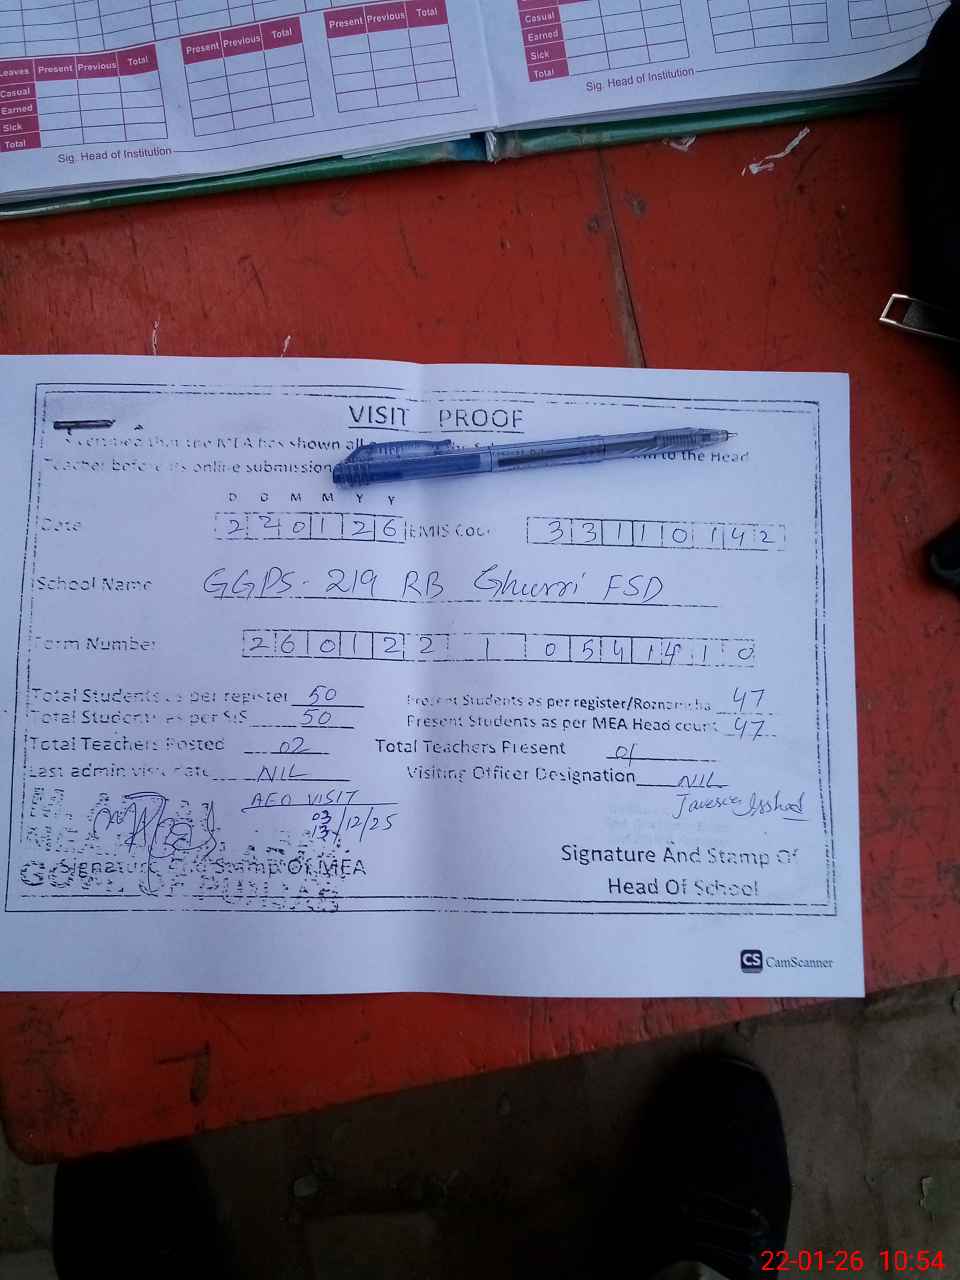 Present Previous Total
Present Previous Total
Casual
Earned
Sick
Total
Leaves Present Previous Total
Casual
Earned
Sick
Total
Sig. Head of Institution
Sig. Head of Institution
VISIT PROOF
that the MEA has shown all
Teacher before its online submission to the Head
D D M M Y Y
Date 2 2 0 1 2 6 EMIS Code 3 3 1 1 0 1 4 2
School Name GGPS. 219 RB Ghurri FSD
Form Number 2 6 0 1 2 2 1 0 5 4 1 4 1 0
Total Students as per register 50 Present Students as per register/Roznamcha 47
Total Students as per SIS 50 Present Students as per MEA Head count 47
Total Teachers Posted 02 Total Teachers Present 01
Last admin visit date NIL Visiting Officer Designation NIL
AEO VISIT
/12/25
Signature And Stamp Of MEA
Signature And Stamp Of
Head Of School
CS CamScanner
22-01-26 10:54